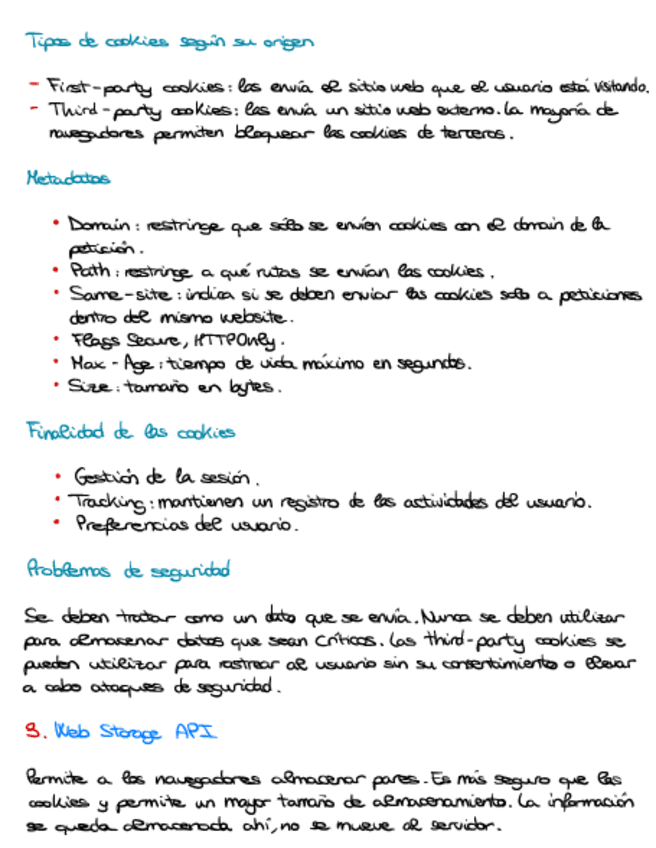 Tipos de cookies según su origen
- First-party cookies: las envía el sitio web que el usuario está visitando.
- Third-party cookies: las envía un sitio web externo. La mayoría de
navegadores permiten bloquear las cookies de terceros.
Metadatos
• Domain: restringe que sólo se envíen cookies con el domain de la
petición.
• Path: restringe a qué rutas se envían las cookies.
• Same-site: indica si se deben enviar las cookies solo a peticiones
dentro del mismo website.
• Flags Secure, HTTPOnly.
• Max-Age: tiempo de vida máximo en segundos.
• Size: tamaño en bytes.
Finalidad de las cookies
• Gestión de la sesión.
• Tracking: mantienen un registro de las actividades del usuario.
• Preferencias del usuario.
Problemas de seguridad
Se deben tratar como un dato que se envía. Nunca se deben utilizar
para almacenar datos que sean críticos. Las third-party cookies se
pueden utilizar para rastrear al usuario sin su consentimiento o llevar
a cabo ataques de seguridad.
3. Web Storage API
Permite a los navegadores almacenar pares. Es más seguro que las
cookies y permite un mayor tamaño de almacenamiento. La información
se queda almacenada ahí, no se mueve al servidor.